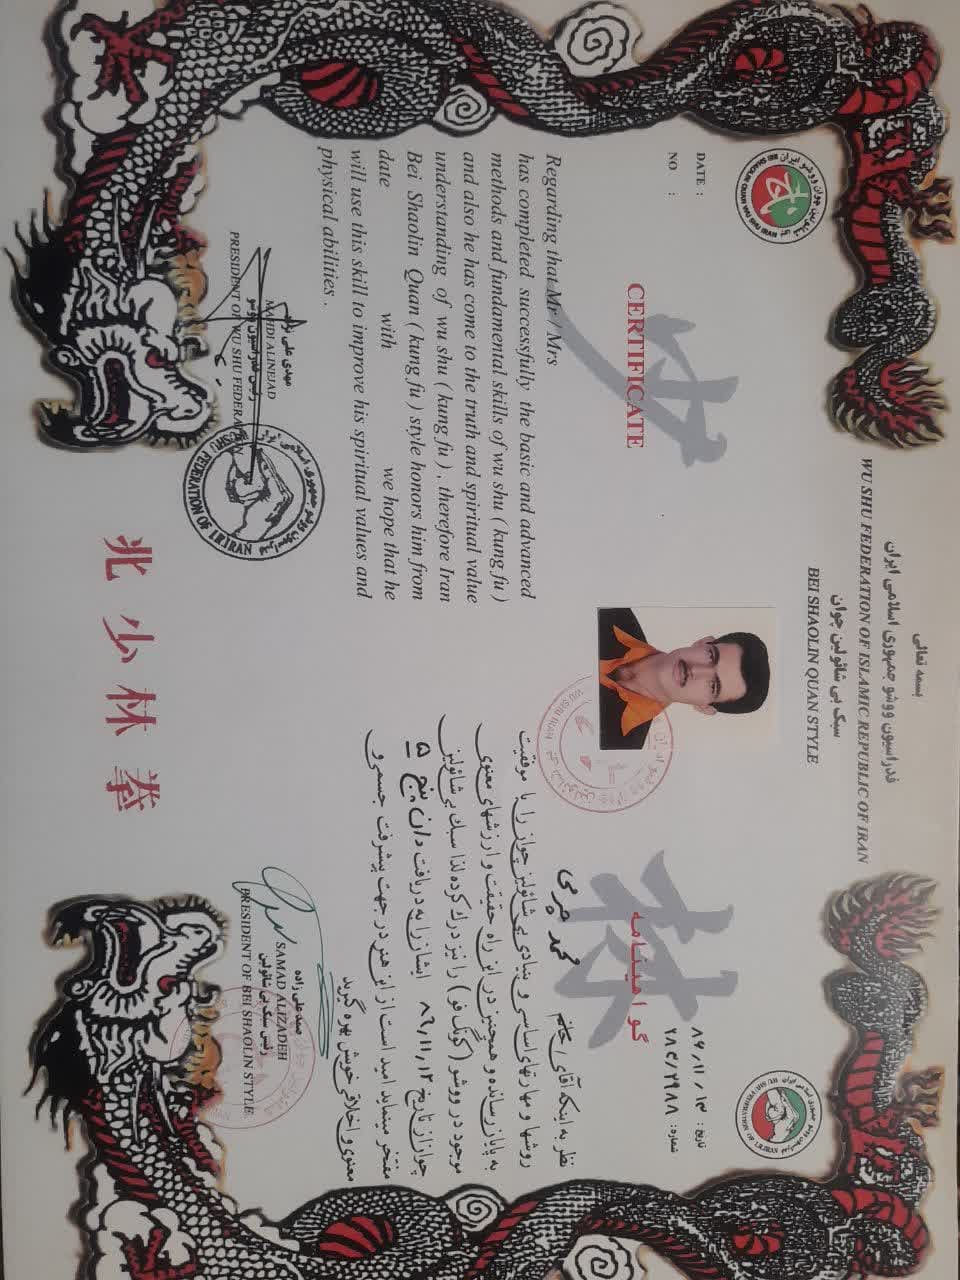 بسمه تعالی
فدراسیون ووشو جمهوری اسلامی ایران
WU SHU FEDERATION OF ISLAMIC REPUBLIC OF IRAN
سبک بی شائولین جوان
BEI SHAOLIN QUAN STYLE
DATE :
NO :
CERTIFICATE
少
Regarding that Mr / Mrs
has completed successfully the basic and advanced
methods and fundamental skills of wu shu ( kung fu )
and also he has come to the truth and spiritual value
understanding of wu shu ( kung fu ) , therefore Iran
Bei Shaolin Quan ( kung fu ) style honors him from
date with we hope that he
will use this skill to improve his spiritual values and
physical abilities .
مهدی علی نژاد
رئیس فدراسیون ووشو
MAHDI ALINEJAD
PRESIDENT OF WU SHU FEDERATION
WUSHU FEDERATION OF I.R.IRAN
تاریخ : ۸۶/۱۱/۱۳
شماره :
گواهینامه
林
نظر به اینکه آقای / خانم محمد
روشها و مهارتهای اساسی و بنیادی بی شائولین جوان را با موفقیت
به پایان رسانده و همچنین در این راه حقیقت و ارزشهای معنوی
موجود در ووشو ( کونگ فو ) را نیز درک کرده لذا سبک بی شائولین
جوان از تاریخ ۸۶/۱۱/۱۳ ایشان را به دریافت دان پنج ۵
مفتخر مینماید امید است از این هنر در جهت پیشرفت جسمی و
معنوی و اخلاقی خویش بهره گیرند
صمد علی زاده
رئیس سبک بی شائولین
SAMAD ALIZADEH
PRESIDENT OF BEI SHAOLIN STYLE
北少林拳